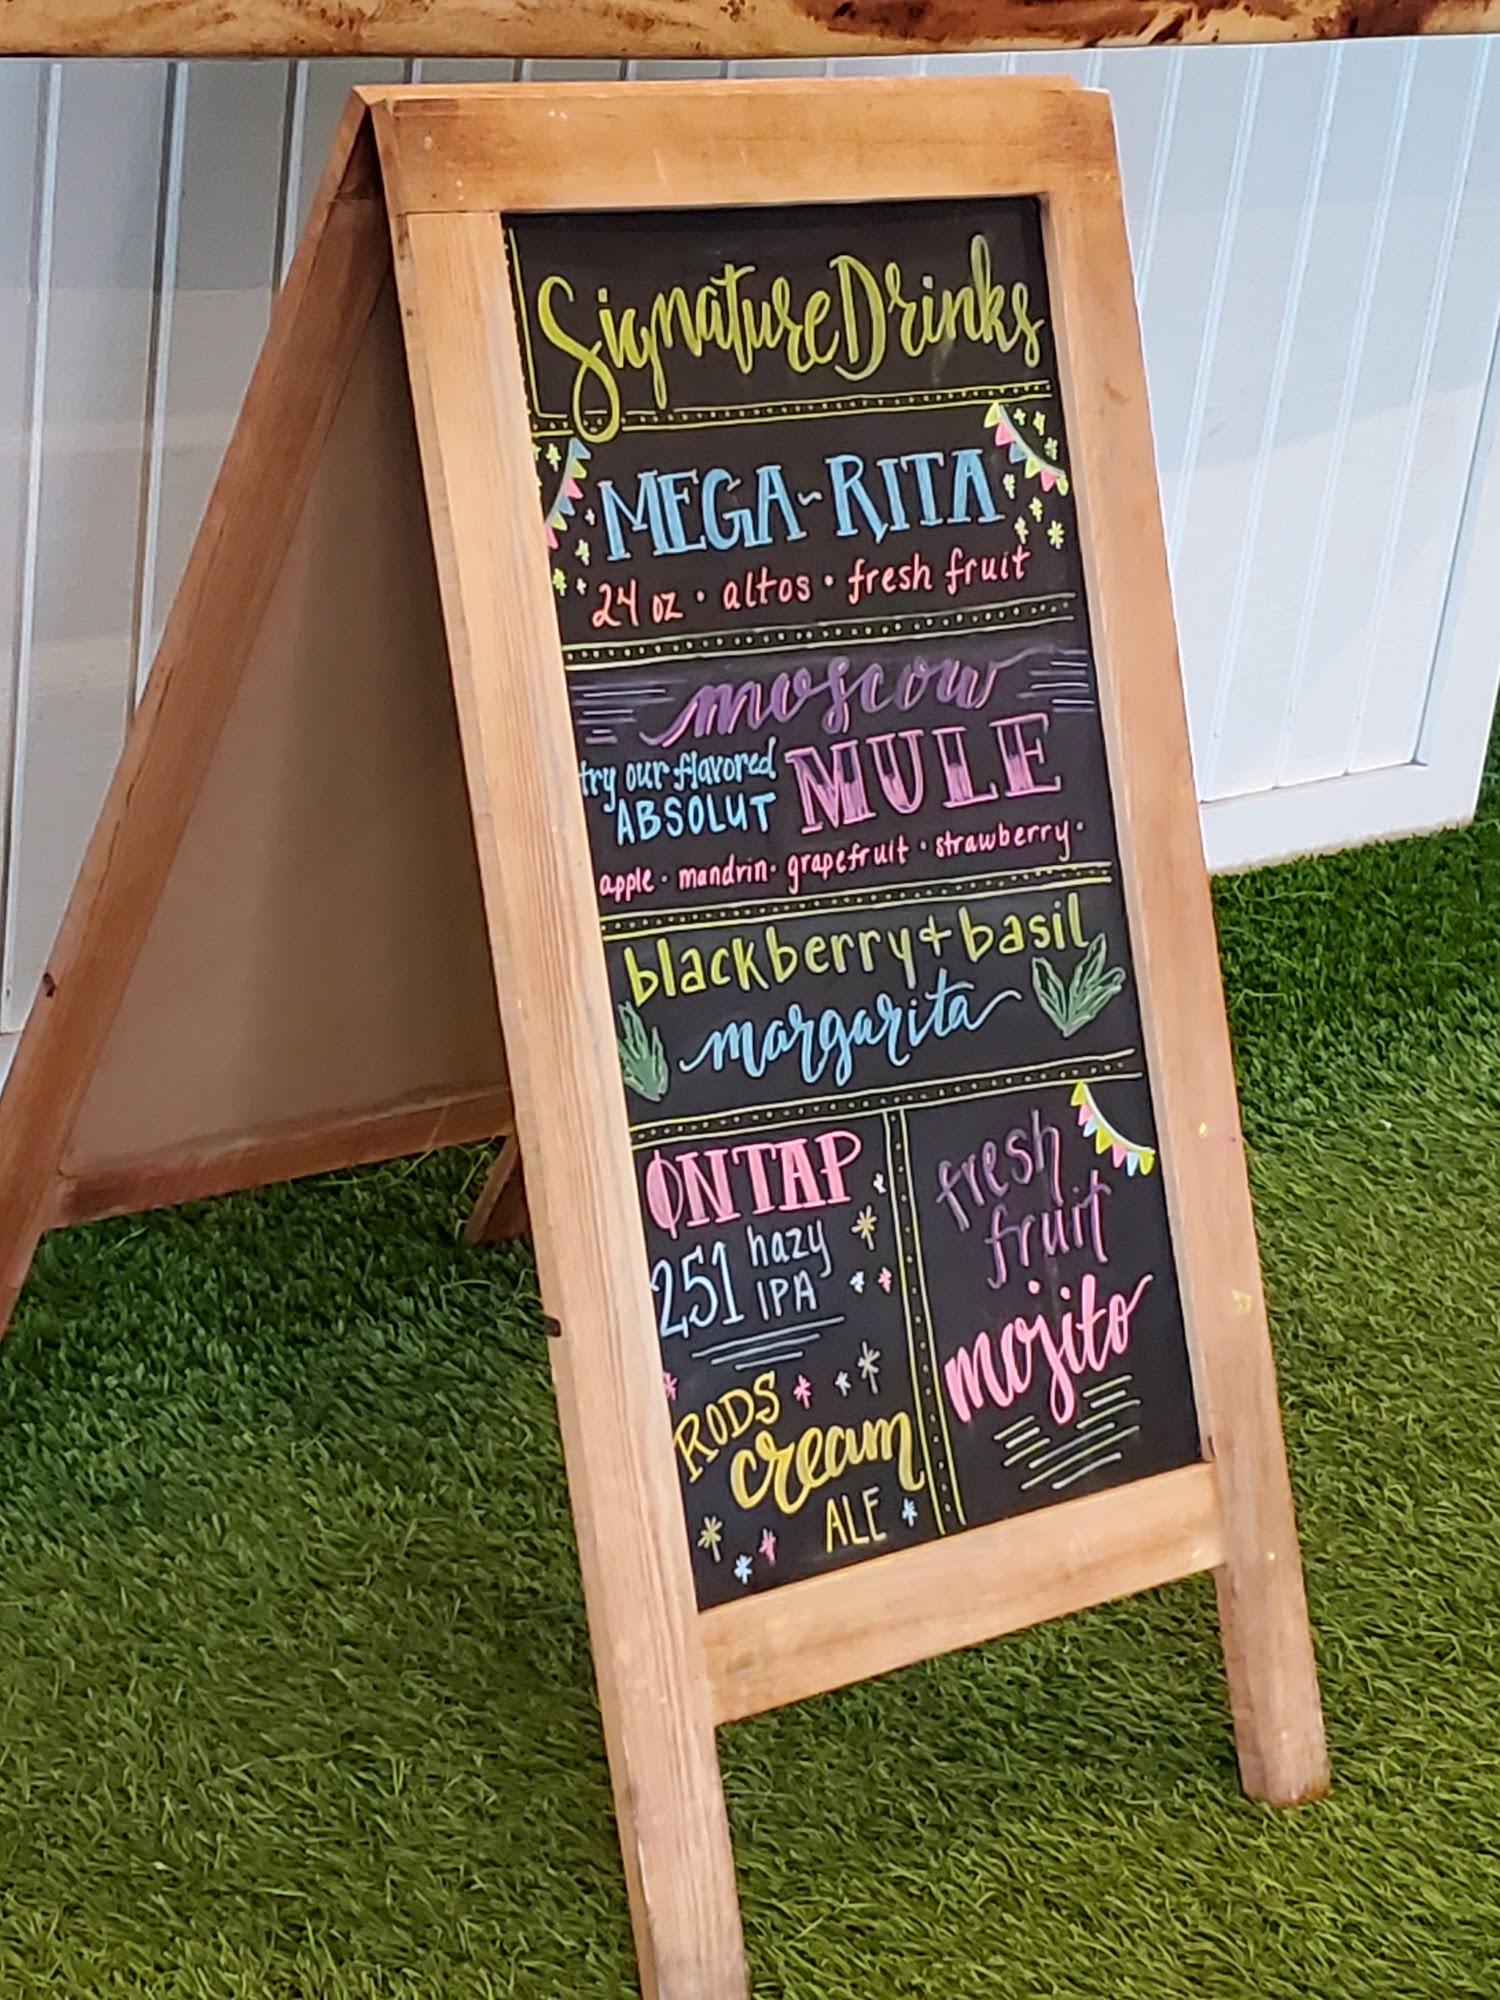 Signature Drinks
MEGA-RITA
24 oz · altos · fresh fruit
moscow
MULE
try our flavored
ABSOLUT
apple · mandrin · grapefruit · strawberry ·
blackberry + basil
margarita
ON TAP
251 hazy
IPA
RODS
cream
ALE
fresh
fruit
mojito